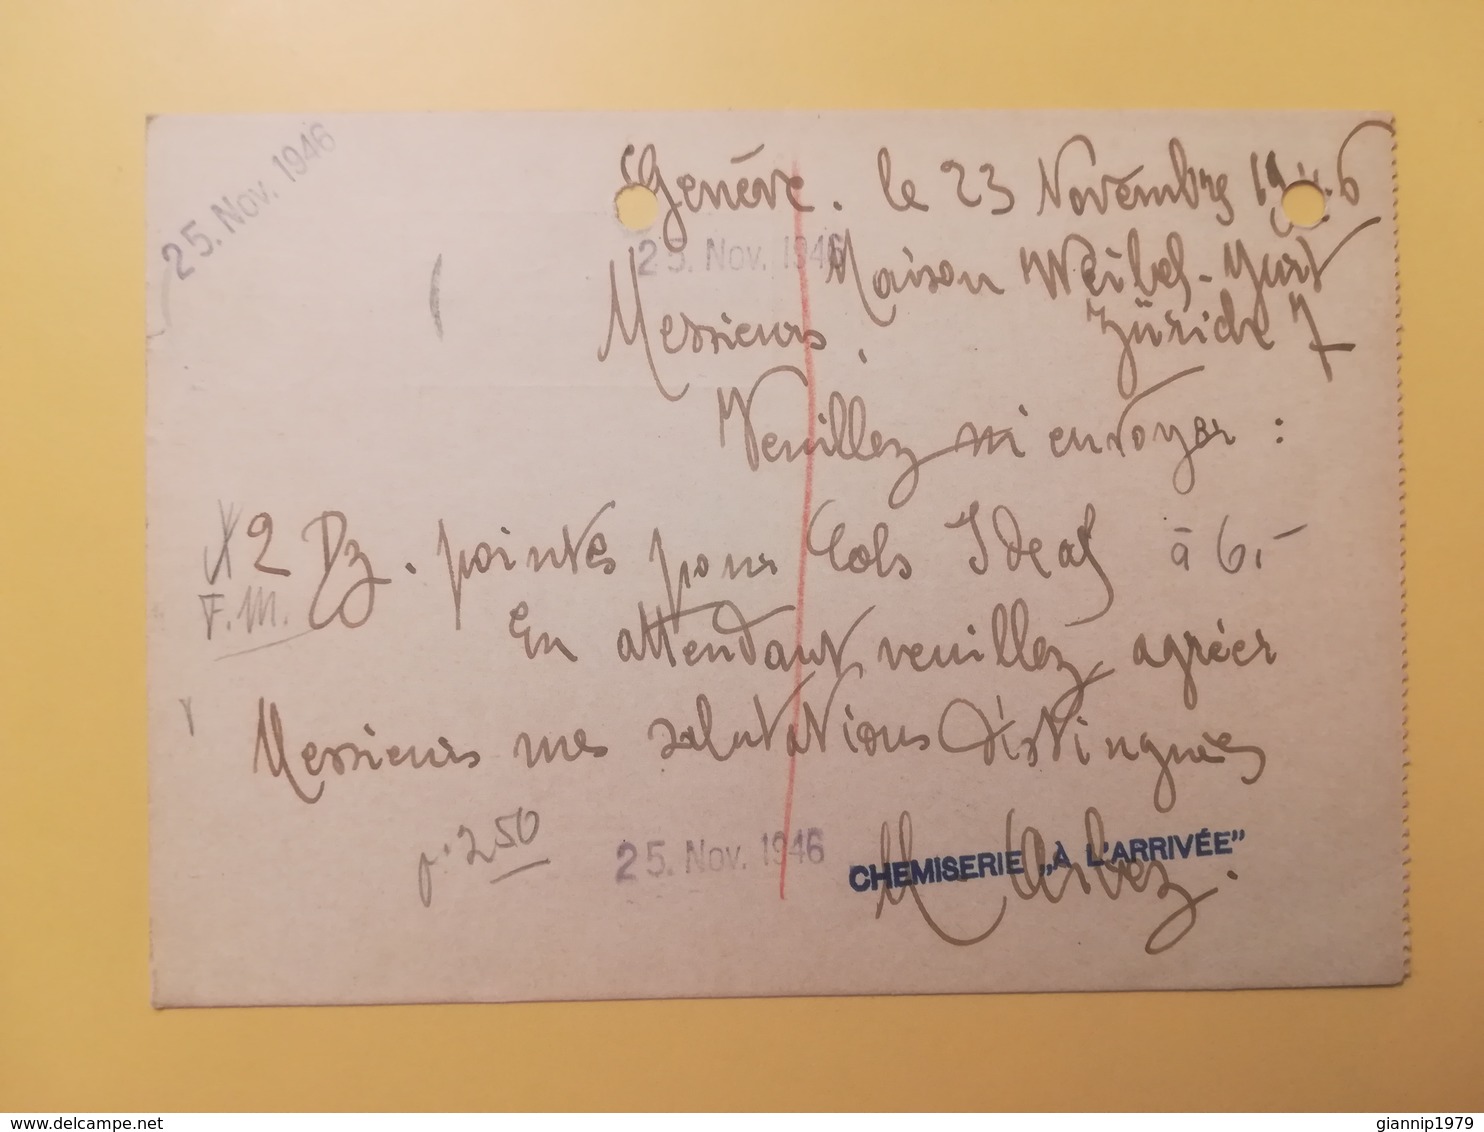 25. Nov. 1946
Genève. le 23 Novembre 1946
25. Nov. 1946
Maison Weibel-
Messieurs, Zürich 7
Veuillez m'envoyer :
2 Dz. pointes pour Cols Ideal à 6.-
F.M.
En attendant, veuillez agréer
Messieurs mes salutations distinguées
p. 2 50
25. Nov. 1946
CHEMISERIE „À L'ARRIVÉE"
www.delcampe.net
giannip1979